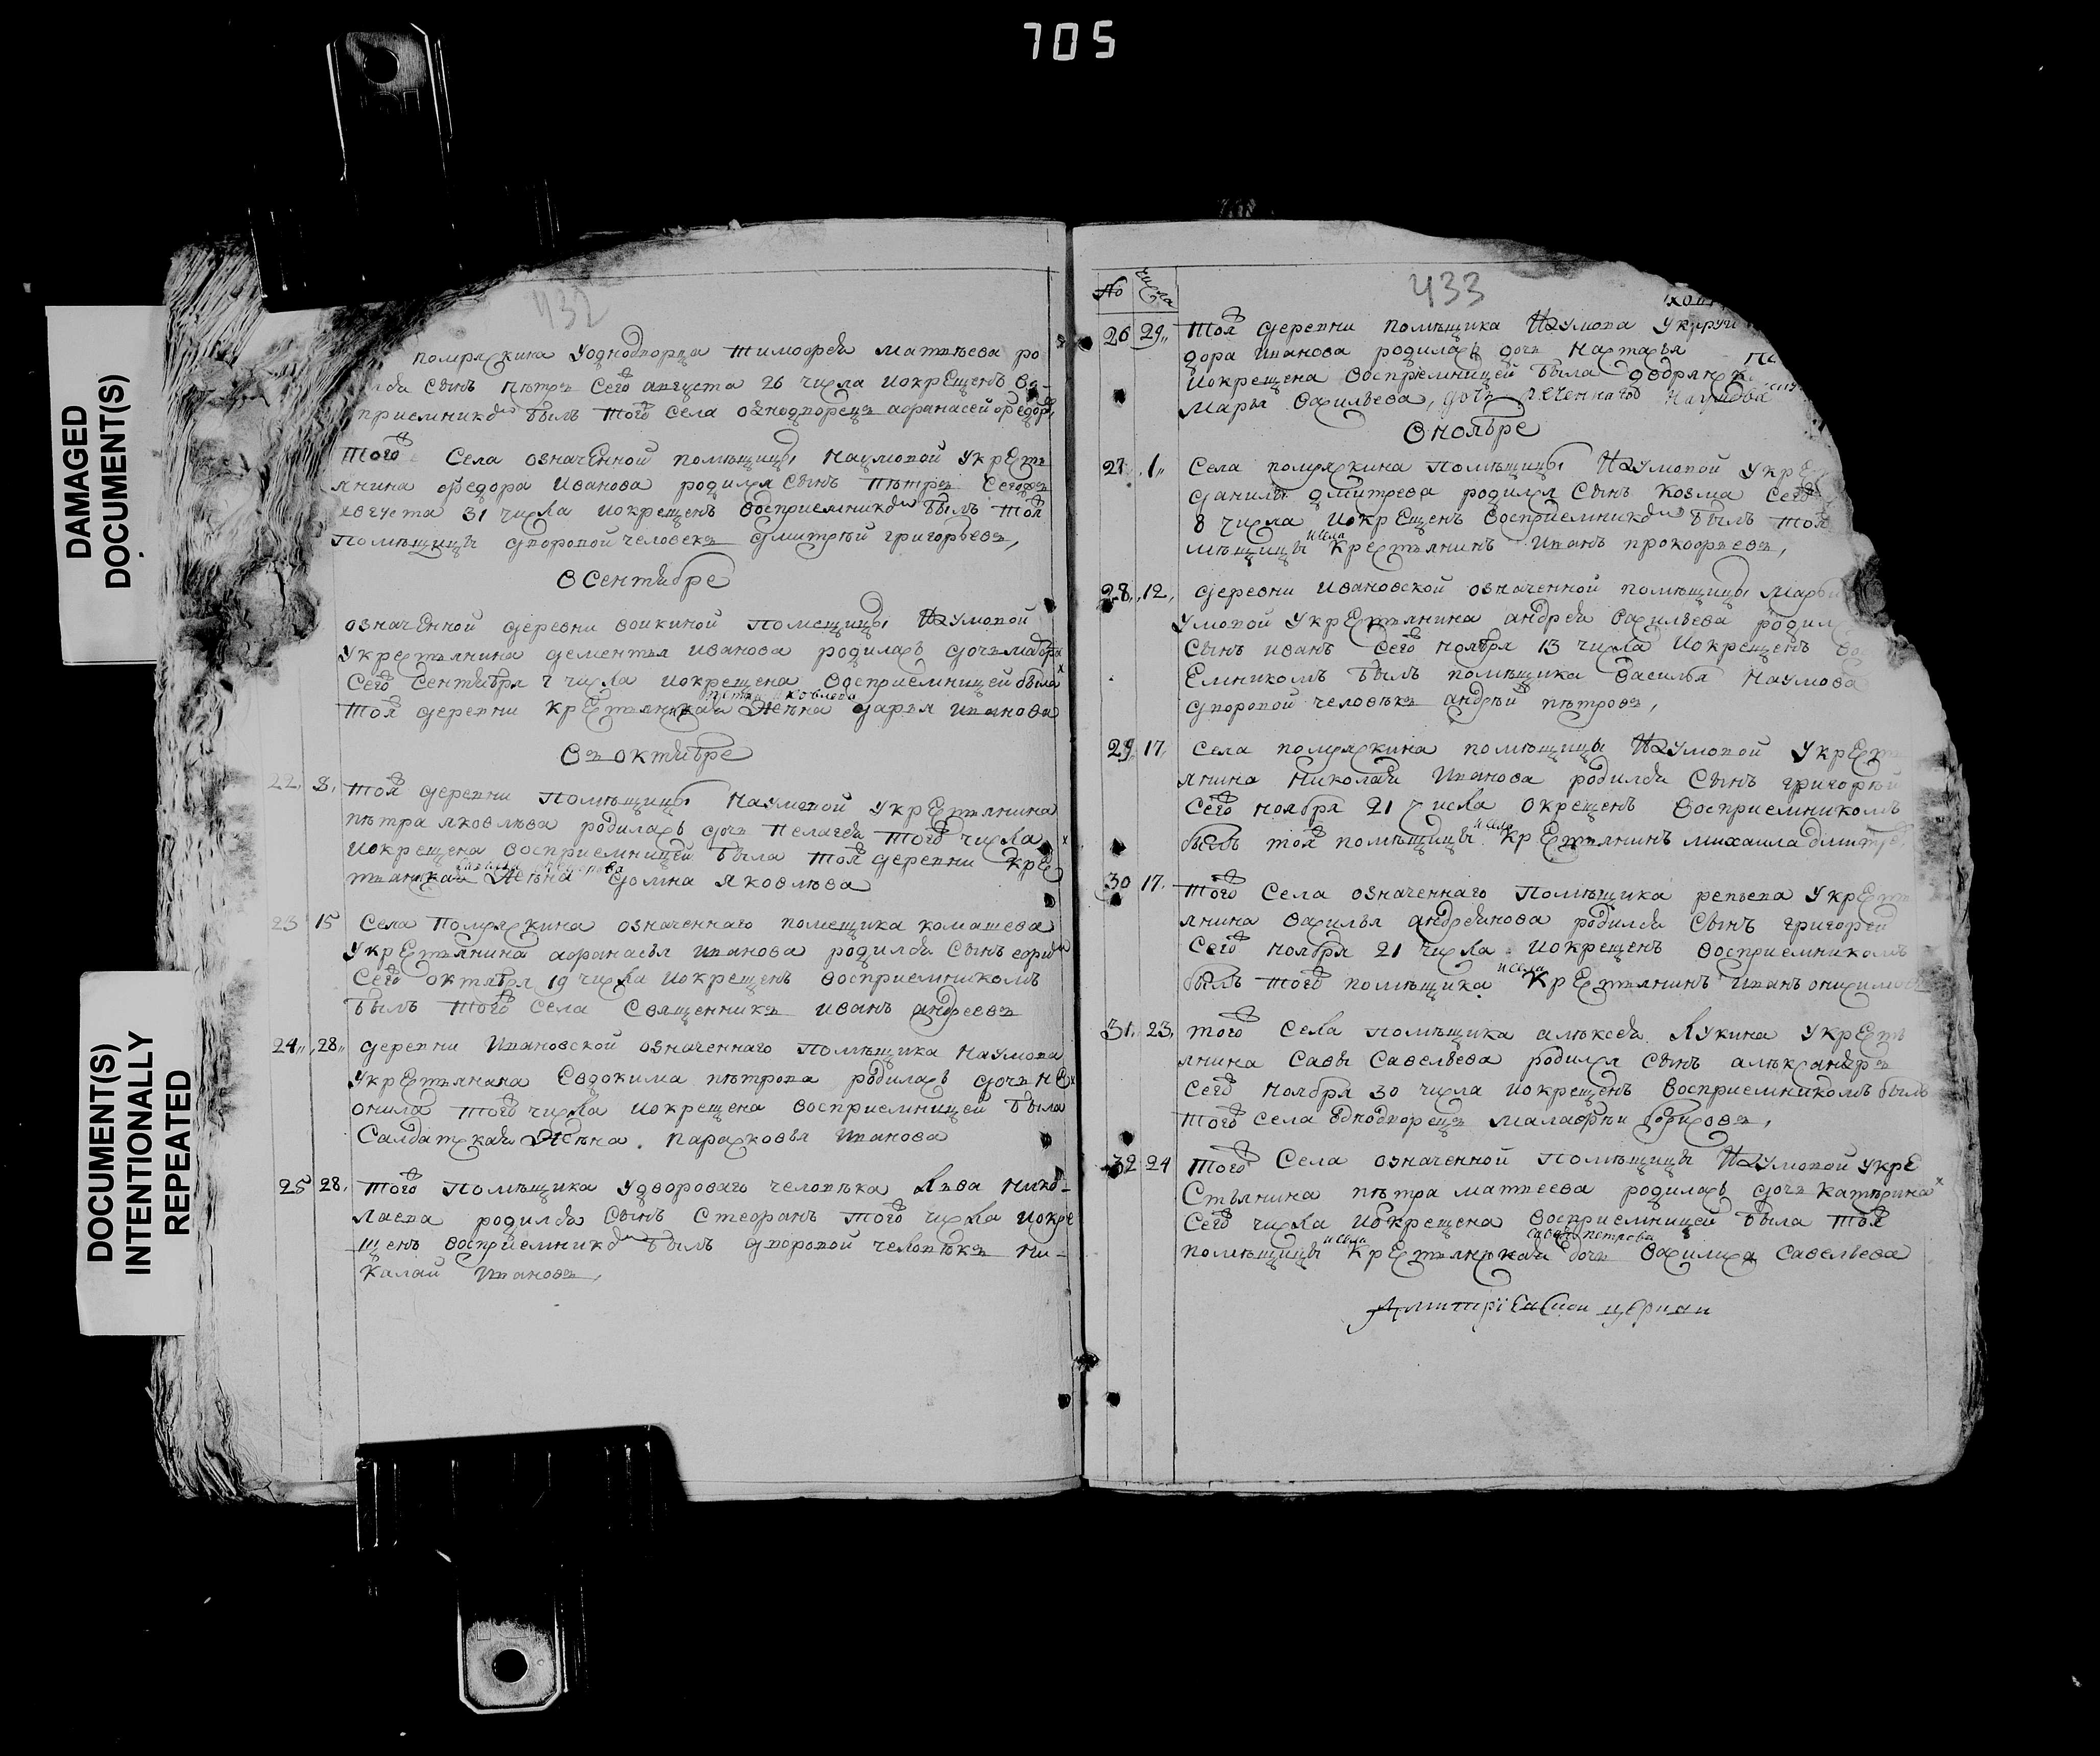 705
DAMAGED
DOCUMENT(S)
DOCUMENT(S)
INTENTIONALLY
REPEATED
432
помряскина Уоднодворца тимофея матвѣева ро
сынъ пѣтръ сего августа 26 числа иокрещенъ во-
приемникомъ былъ того села однодворецъ афанасей федо
того Села означенной помѣщицы наумовой укресть
янина федора иванова родился сынъ пѣтръ сегожъ
августа 31 числа иокрещенъ восприемникомъ былъ той
помѣщицы дворовой человекъ дмитрѣй григорьевъ,
в сентябре
означенной деревни воикиной помещицы Наумовой
укрестьянина дементья иванова родилась дочь мавра
сего сентября 7 числа иокрещена восприемницей была
петра яковлева
той деревни крестьянская жена дарья иванова
въ октябре
22. 8. той деревни помѣщицы Наумовой укрестьянина
пѣтра яковлева родилась дочь пелагея того числа
иокрещена восприемницей была той деревни кре
стьянская жена домна яковлева
23 15 Села помряскина означеннаго помещика комашева
укрестьянина афанасья иванова родился сынъ
сего октября 19 числа иокрещенъ восприемникомъ
былъ того села священникъ иванъ андреевъ
24 28 деревни ивановской означеннаго помѣщика наумова
укрестьянина Евдокима пѣтрова родилась дочь не
онила того числа иокрещена восприемницей была
салдатская жена парасковья иванова
25 28. того помѣщика удвороваго человѣка Льва нико-
лаева родился сынъ стефанъ того числа иокре
щенъ восприемникомъ былъ дворовой человѣкъ ни-
калай ивановъ,
№ числа 433
26 29 той деревни помѣщика Наумова
дора иванова родилась дочь настасья
иокрещена восприемницей была дворянка
марья васильева, дочь
в ноябре
27 1 села помряскина помѣщицы Наумовой укре
данилы дмитрева родился сынъ козма сего
8 числа иокрещенъ восприемникомъ былъ той
исела
мѣщицы крестьянинъ иванъ прокофьевъ,
28 12 деревни ивановской означенной помѣщицы марьи
умовой укрестьянина андрея васильева родил
сынъ иванъ сего ноября 13 числа иокрещенъ во
емникомъ былъ помѣщика василья наумова
дворовой человѣкъ андрѣй пѣтровъ,
29 17 села помряскина помѣщицы Наумовой укрест
янина николая иванова родился сынъ григорѣй
сего ноября 21 числа окрещенъ восприемникомъ
исела
былъ той помѣщицы крестьянинъ михаила
30 17. того села означеннаго помѣщика репьева укрест
янина василья андреянова родился сынъ григорей
сего ноября 21 числа иокрещенъ восприемникомъ
исела
былъ того помѣщика крестьянинъ иванъ
31. 23. того села помѣщика алѣксея Лукина укресть
янина савы савельева родился сынъ алѣксандръ
сего ноября 30 числа иокрещенъ восприемникомъ былъ
того села однодворецъ борисовъ,
32 24 того села означенной помѣщицы Наумовой укре
стьянина пѣтра матвеева родилась дочь катѣрина
сего числа иокрещена восприемницей была той
исела савы петрова
помѣщицы крестьянская дочь василиса савельева